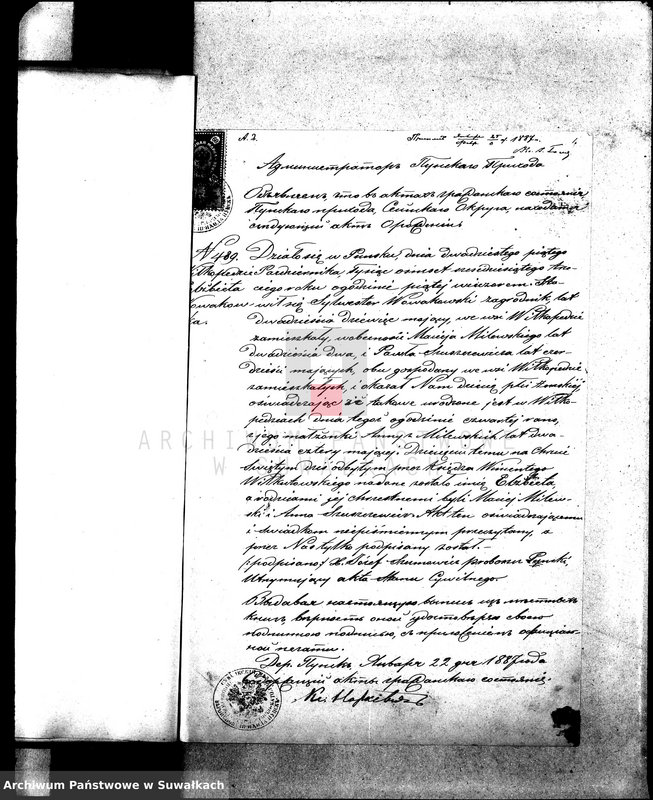 А. З.
1887 г.
Администраторъ Пунскаго Прихода
Объявляетъ, что въ актахъ гражданскаго состоянія
Пунскаго прихода, Сейнскаго Округа, находится
слѣдующій актъ о рожденіи:
N 489. Działo się w Puńsku, dnia dwudziestego piątego
Października, tysiąc ośmset sześćdziesiątego trze-
ciego roku o godzinie piątej wieczorem. Sta-
wił się Sylwester Nowakowski zagrodnik, lat
dwadzieścia dziewięć mający, we wsi Wiłkopedzie
zamieszkały, w obecności Macieja Milewskiego lat
dwadzieścia dwa, i Pawła Szuszczewicza lat czter-
dzieści mających, obu gospodarzy we wsi Wiłkopedzie
zamieszkałych, i okazał Nam dziecię płci żeńskiej
oświadczając że takowe urodzone jest w Wiłko-
pedziach dnia tegoż o godzinie czwartej rano,
z jego małżonki Anny z Milewskich, lat dwa-
dzieścia cztery mającej. Dziecięciu temu na Chrzcie
Świętym dziś odbytym przez Księdza Wincentego
nadane zostało imię Elżbieta,
a rodzicami jej chrzestnemi byli Maciej Milew-
ski i Anna Szuszczewicz. Akt ten oświadczającemu
i świadkom niepiśmiennym przeczytany, z
przez Nas tylko podpisany został. –
/:podpisano:/ X. Józef Szumowicz proboszcz Puński,
Utrzymujący akta Stanu Cywilnego.
Выдавая настоящую выпись изъ метрическ.
книгъ, вѣрность оной удостовѣряю своею
подписью, съ приложеніемъ офиціаль-
ной печати.
Дер. Пунскъ Января 22 дня 1887 года
Содержащій акты гражданскаго состоянія
Кс.
ARCHIWUM PAŃSTWOWE
W SUWAŁKACH
Archiwum Państwowe w Suwałkach